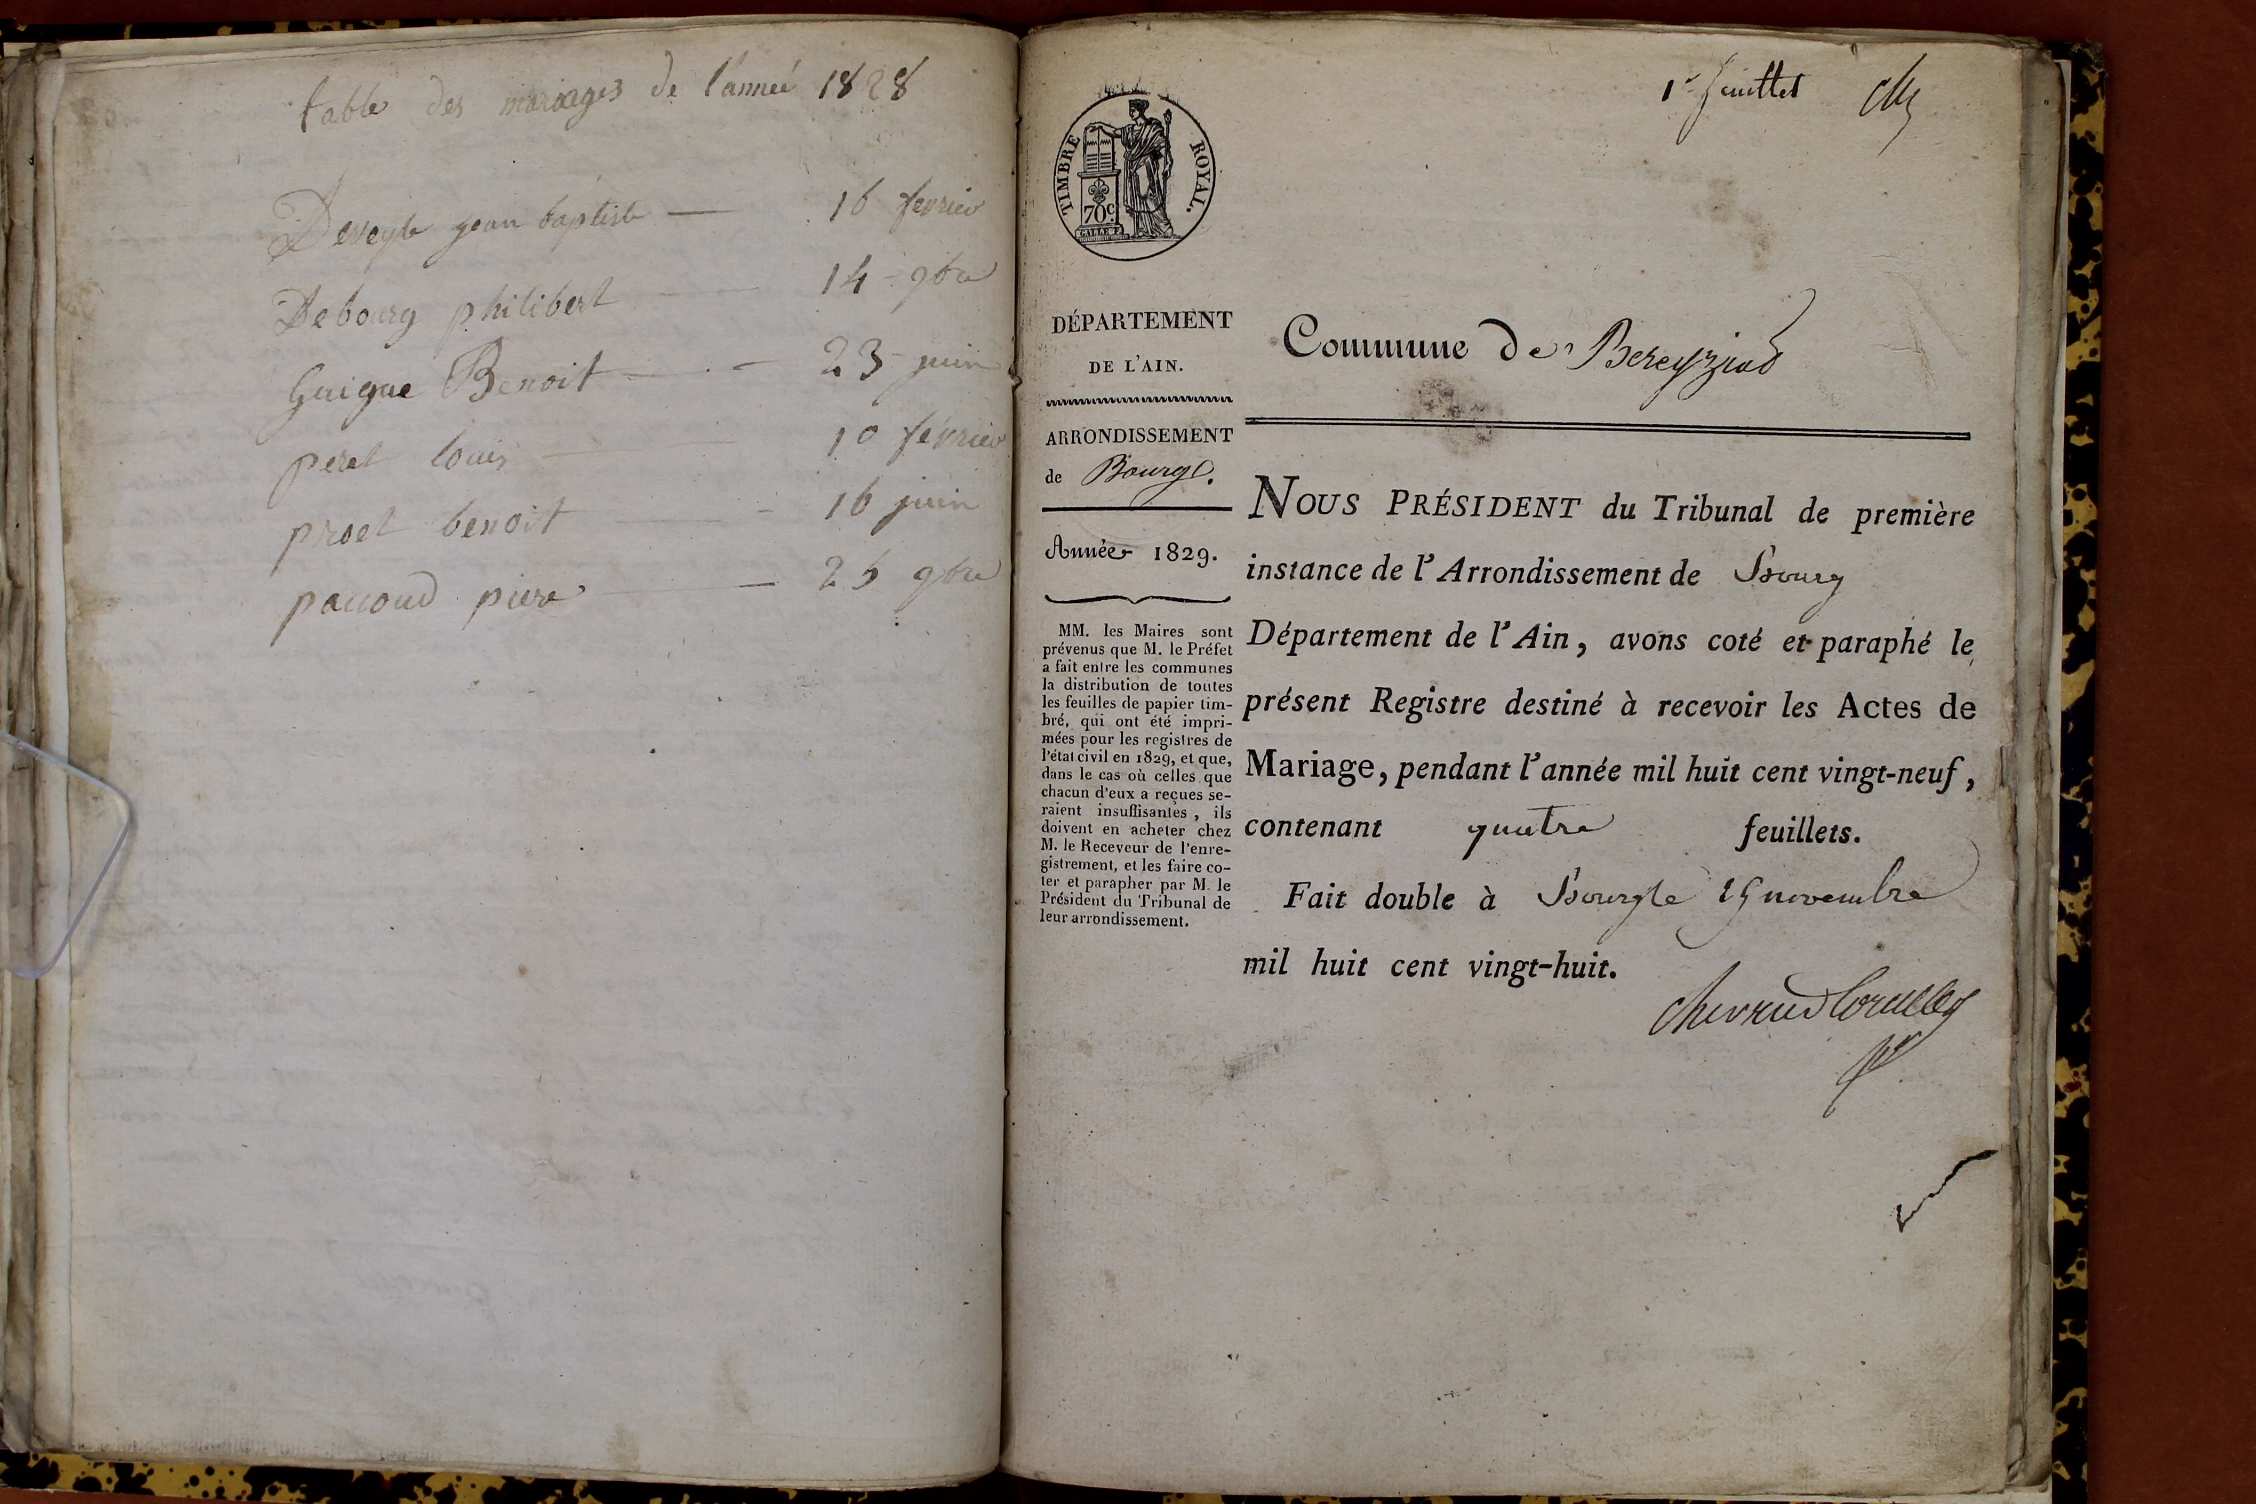 table des mariages de l'année 1828
Deveyle jean baptiste — 16 fevrier
Debourg philibert — 14 9bre
Guigue Benoit — 23 juin
peret louis — 10 fevrier
proet benoit — 16 juin
paccoud piere — 25 9bre
1er feuillet
TIMBRE ROYAL.
70c
DÉPARTEMENT
DE L'AIN.
ARRONDISSEMENT
de Bourg.
Année 1829.
MM. les Maires sont
prévenus que M. le Préfet
a fait entre les communes
la distribution de toutes
les feuilles de papier tim-
bré, qui ont été impri-
mées pour les registres de
l'état civil en 1829, et que,
dans le cas où celles que
chacun d'eux a reçues se-
raient insuffisantes, ils
doivent en acheter chez
M. le Receveur de l'enre-
gistrement, et les faire co-
ter et parapher par M. le
Président du Tribunal de
leur arrondissement.
Commune de Bereyziad
NOUS PRÉSIDENT du Tribunal de première
instance de l'Arrondissement de Bourg
Département de l'Ain, avons coté et paraphé le
présent Registre destiné à recevoir les Actes de
Mariage, pendant l'année mil huit cent vingt-neuf,
contenant quatre feuillets.
Fait double à Bourg le novembre
mil huit cent vingt-huit.